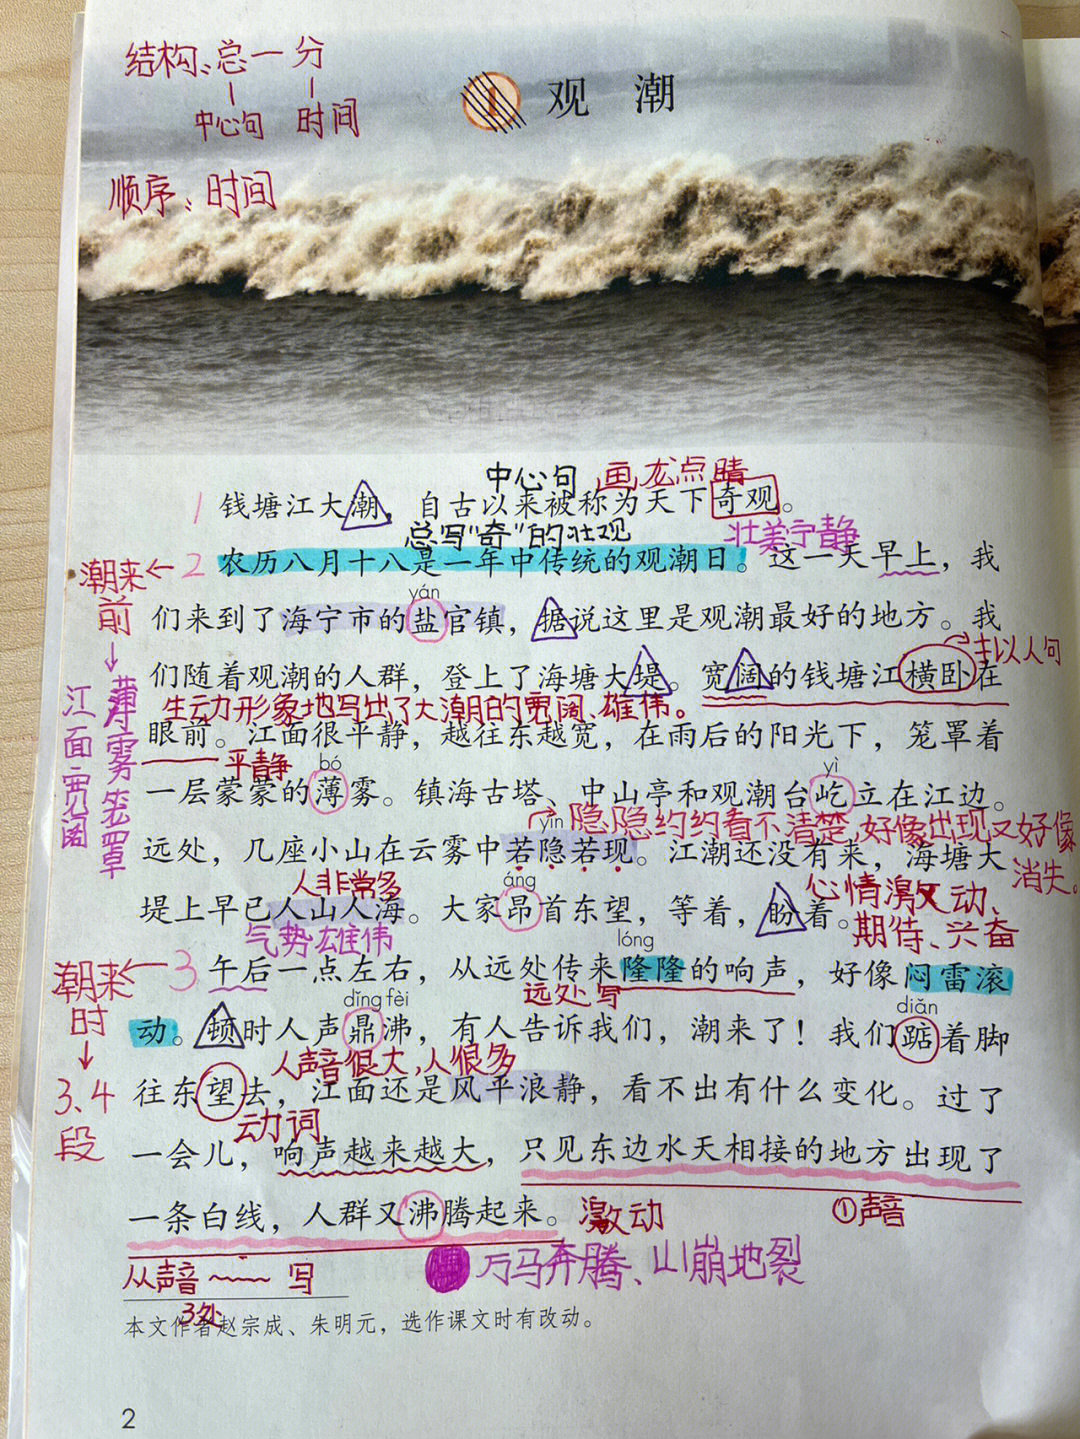 结构:总一分
中心句 时间
顺序:时间
1 观潮
中心句 画龙点睛
1 钱塘江大潮,自古以来被称为天下奇观。
总写“奇”的壮观 壮美宁静
潮来前 2 农历八月十八是一年中传统的观潮日。这一天早上,我
yán
们来到了海宁市的盐官镇,据说这里是观潮最好的地方。我
们随着观潮的人群,登上了海塘大堤。宽阔的钱塘江横卧在
生动形象地写出了大潮的宽阔、雄伟。
眼前。江面很平静,越往东越宽,在雨后的阳光下,笼罩着
平静 bó yì
一层蒙蒙的薄雾。镇海古塔、中山亭和观潮台屹立在江边。
江面宽阔
薄雾笼罩
yǐn 隐隐约约看不清楚,好像出现又好像消失。
远处,几座小山在云雾中若隐若现。江潮还没有来,海塘大
人非常多 áng 心情激动、期待、兴奋
堤上早已人山人海。大家昂首东望,等着,盼着。
气势雄伟 lóng
潮来时 3、4段
3 午后一点左右,从远处传来隆隆的响声,好像闷雷滚
远处写 dǐng fèi diǎn
动。顿时人声鼎沸,有人告诉我们,潮来了!我们踮着脚
人声音很大,人很多
往东望去,江面还是风平浪静,看不出有什么变化。过了
动词
一会儿,响声越来越大,只见东边水天相接的地方出现了
一条白线,人群又沸腾起来。 激动 ①声音
从声音~~写 万马奔腾、山崩地裂
3处
本文作者赵宗成、朱明元,选作课文时有改动。
2